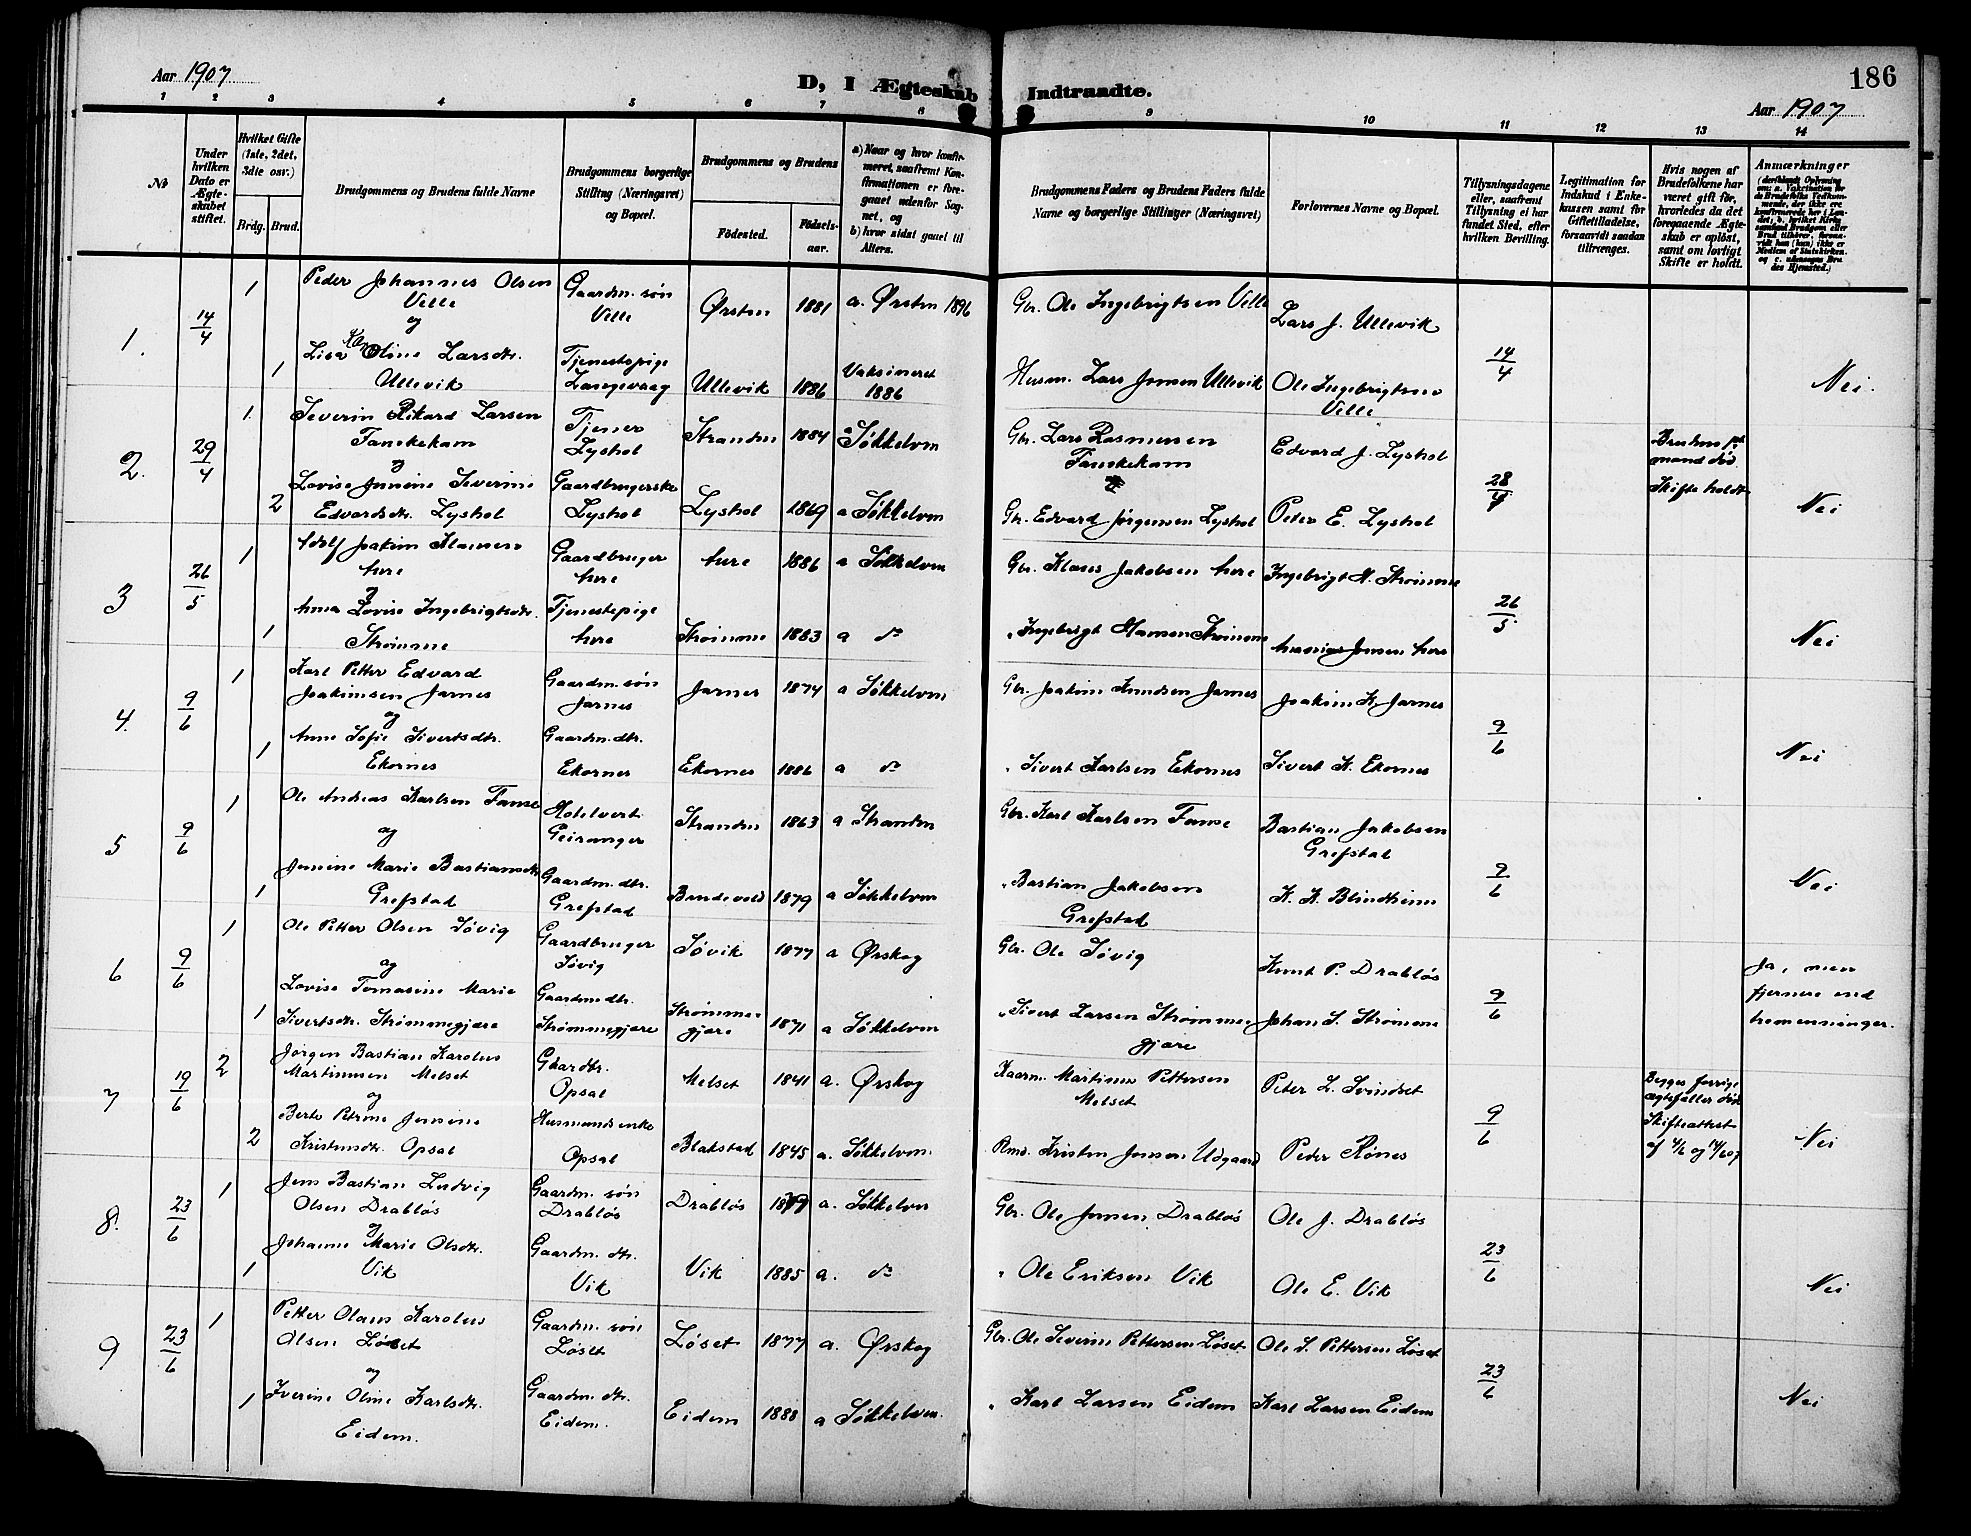 Aar 1907
D, I Ægteskab Indtraadte.
186
Aar 1907
1 2 3 4 5 6 7 8 9 10 11 12 13 14
No
Under hvilken Dato er Ægteskabet stiftet.
Hvilket Gifte (1ste, 2det, 3die osv.)
Brdg. Brud.
Brudgommens og Brudens fulde Navne
Brudgommens borgerlige Stilling (Næringsvei) og Bopæl.
Brudgommens og Brudens
Fødested.
Fødselsaar.
a) Naar og hvor konfirmeret, saafremt Konfirmationen er foregaaet udenfor Sognet, og
b) hvor sidst gaaet til Alters.
Brudgommens Faders og Brudens Faders fulde Navne og borgerlige Stillinger (Næringsvei)
Forlovernes Navne og Bopæl.
Tillysningsdagene eller, saafremt Tillysning ei har fundet Sted, efter hvilken Bevilling.
Legitimation for Indskud i Enkekassen samt for Giftetilladelse, forsaavidt saadan tiltrænges.
Hvis nogen af Brudefolkene har været gift før, hvorledes da det foregaaende Ægteskab er opløst, samt om lovligt Skifte er holdt.
Anmærkninger
1. 14/4 1 Peder Johannes Olsen Velle Gaardm. søn Velle Ørsten 1881 a. Ørsten 1896 Gbr. Ole Ingebrigtsen Velle Lars J. Ullevik
og
1 Lisa Oline Larsdtr. Ullevik Tjenestepige Langevaag Ullevik 1886 Vaksineret 1886 Husm. Lars Jonsen Ullevik Ole Ingebrigtsen Velle 14/4 Nei.
2. 29/4 1. Severin Rikard Larsen Fauskekam Tjener Lyshol Stranden 1884 a Søkkelven Gbr. Lars Rasmussen Fauskekam Edvard J. Lyshol
og
2 Lovise Jensine Severine Edvardsdtr. Lyshol Gaardbrugerske Lyshol Lyshol 1869 a Søkkelven Gbr. Edvard Jørgensen Lyshol Peder E. Lyshol 28/4 mand død Skifte holdt Nei
3 26/5 1 Adolf Joakim Klausen Aure Gaardbruger Aure Aure 1886 a Søkkelven Gbr. Klaus Jakobsen Aure Ingebrigt H. Strømme
og
1 Anna Lovise Ingebrigtsdtr. Strømme Tjenestepige Aure Strømme 1883 a do " Ingebrigt Hansen Strømme Jensen Aure 26/5 Nei
4. 9/6 1 Karl Petter Edvard Joakimsen Jarnes Gaardm. søn Jarnes Jarnes 1874 a Søkkelven Gbr. Joakim Knudsen Jarnes Joakim K. Jarnes
og
1 Anne Sofie Sivertsdtr. Ekornes Gaardm. dtr. Ekornes Ekornes 1886 a do " Sivert Karlsen Ekornes Sivert K. Ekornes 9/6 Nei
5 9/6 1 Ole Andreas Karlsen Hotelvert Geiranger Stranden 1863 a Stranden Gbr. Karl Karlsen Bastian Jakobsen Grefstad
og
1 Jensine Marie Bastiansdtr. Grefstad Gaardm. dtr. Grefstad 1879 a Søkkelven " Bastian Jakobsen Grefstad K. K. Blindheim 9/6 Nei
6 9/6 1 Ole Petter Olsen Søvig Gaardbruger Søvig Søvik 1877 a Ørskog Gbr. Ole Søvig Knut P. Drabløs
og
1 Lovise Tomasine Marie Sivertsdtr. Strømmegjære Gaardm. dtr. Strømmegjære Strømmegjære 1871 a Søkkelven " Sivert Larsen Strømmegjære Johan S. Strømme 9/6 Ja, men fjernere end tremenninger.
7 19/6 2 Jørgen Bastian Karolus Martinusen Melset Opsal Melset 1841 a. Ørskog Kaarm. Martinus Pettersen Melset Peter L. Svindset
og
2 Berte Petrine Jensine Kristensdtr. Opsal Husmandsenke Opsal Blakstad 1845 a. Søkkelven Kristen Jensen Udgaard Peder Rønes 9/6 Begges forrige ægtefæller død Skifteattest af 4/6 og 14/6 07 Nei
8. 23/6 1 Jens Bastian Ludvig Olsen Drabløs Gaardm. søn Drabløs Drabløs 1879 a. Søkkelven Gbr. Ole Jensen Drabløs Ole J. Drabløs
og
1 Johanne Marie Olsdtr. Vik Gaardm. dtr. Vik Vik 1885 a. do " Ole Eriksen Vik Ole E. Vik 23/6 Nei
9 23/6 1 Petter Olaus Karolus Olsen Løset Gaardm. søn Løset Løset 1877 a. Ørskog Gbr. Ole Severin Pettersen Løset Ole S. Pettersen Løset
og
1 Iverine Oline Karlsdtr. Eidem. Gaardm. dtr. Eidem. Eidem 1888 a Søkkelven. " Karl Larsen Eidem Karl Larsen Eidem 23/6 Nei